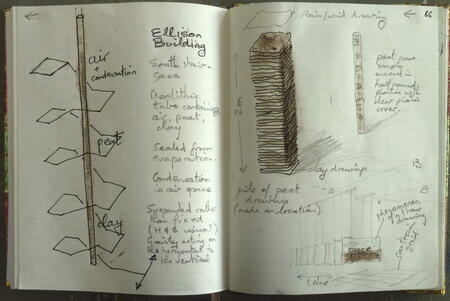 Ellison
Building
air
+
condensation
South stair-
Monolithic
tube containing
air, peat,
clay
peat
Sealed from
evaporation.
Condensation
in air space
clay
Suspended rather
than fixed
Gravity acting on
the horizontal to
the vertical
Rain/wind drawing
peat core
simply
mixed in
plastic with
clear plastic
cover.
clay drawings
pile of peat
drawings
(made on location)
B
phenomenon
drawing
time